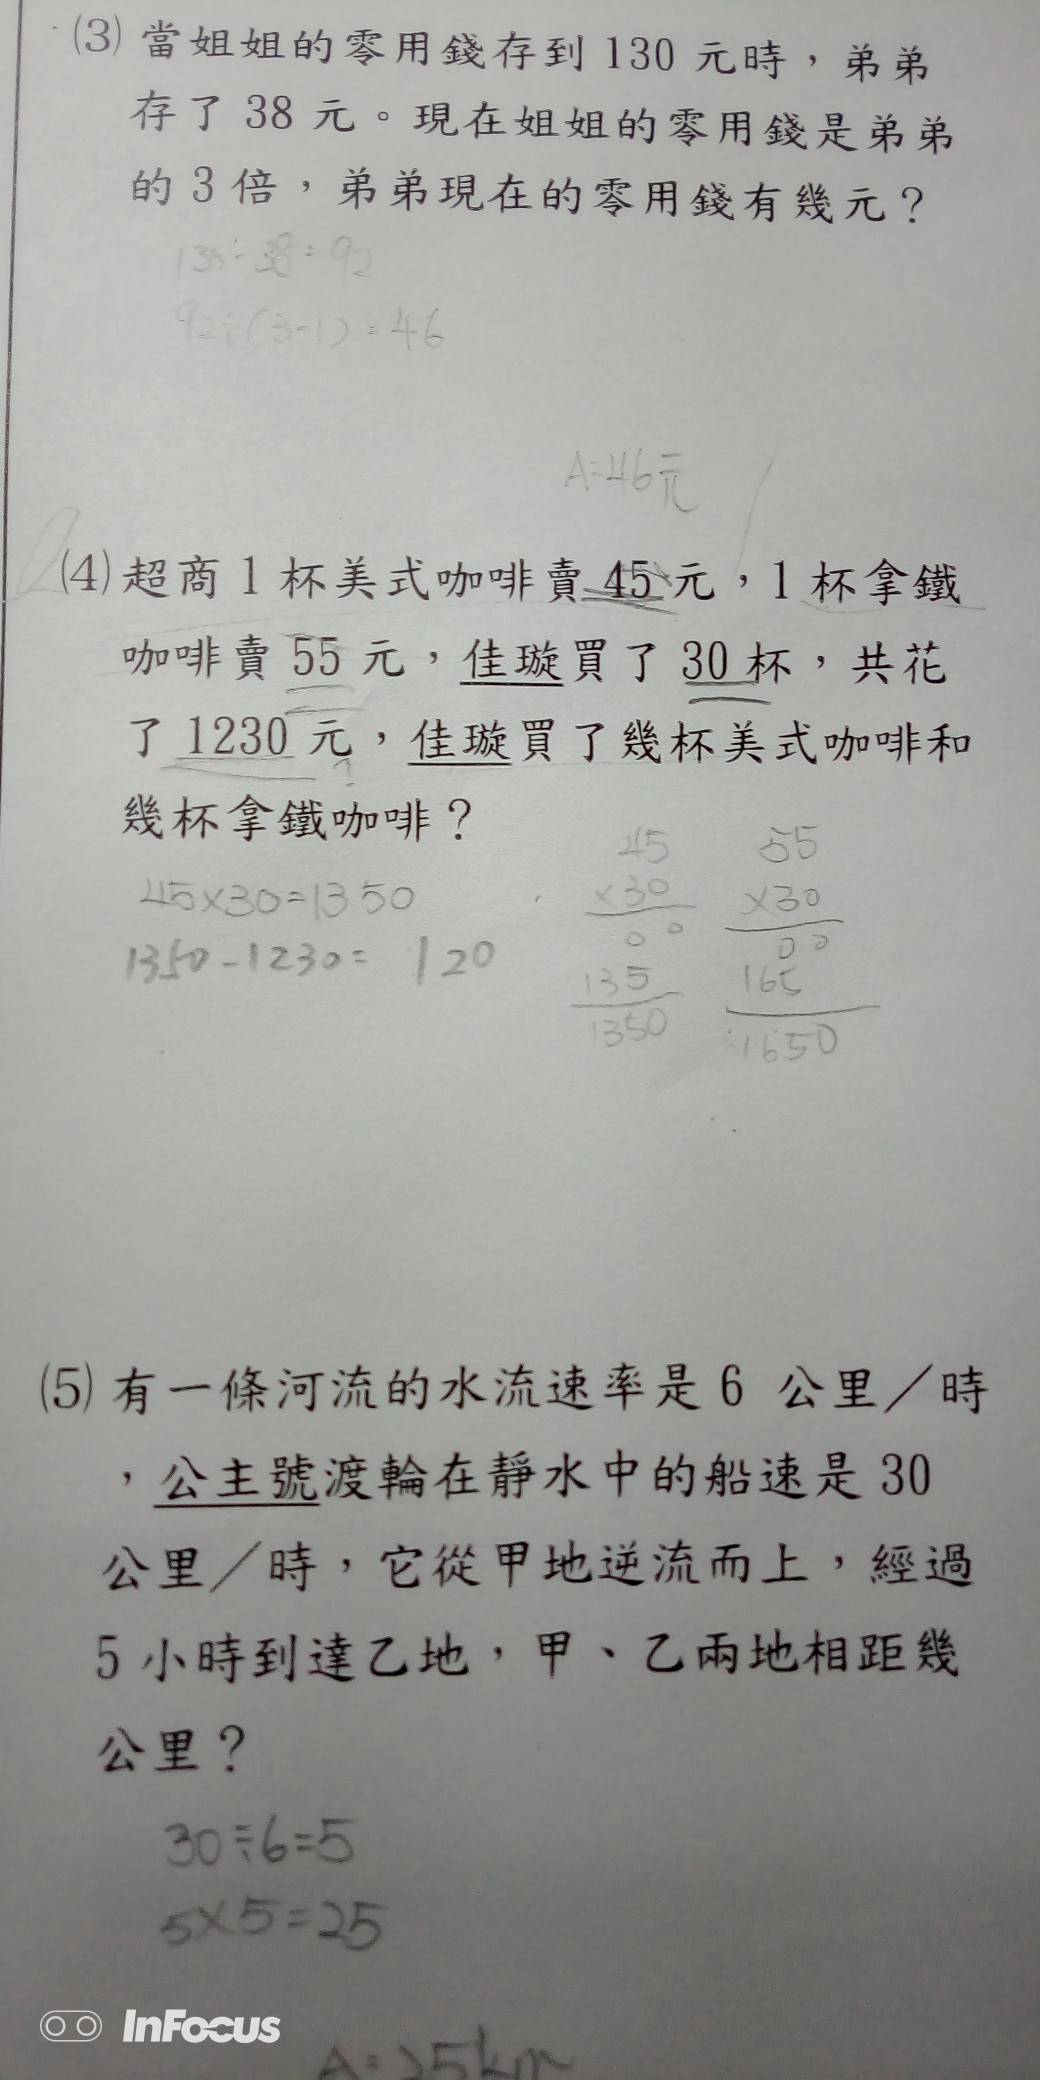 (3) 當姐姐的零用錢存到 130 元時，弟弟
存了 38 元。現在姐姐的零用錢是弟弟
的 3 倍，弟弟現在的零用錢有幾元？
130-38=92
92÷(3-1)=46
A=46元
(4) 超商 1 杯美式咖啡賣 45 元，1 杯拿鐵
咖啡賣 55 元，佳璇買了 30 杯，共花
了 1230 元，佳璇買了幾杯美式咖啡和
幾杯拿鐵咖啡？
45 55
45×30=1350 ×30 ×30
00 00
1350-1230= 120 135 165
1350 1650
(5) 有一條河流的水流速率是 6 公里／時
，公主號渡輪在靜水中的船速是 30
公里／時，它從甲地逆流而上，經過
5 小時到達乙地，甲、乙兩地相距幾
公里？
30÷6=5
5×5=25
InFocus
A=25km